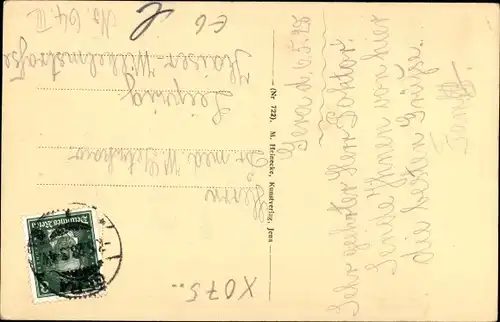 Gera d. 6.5.28
Sehr geehrter Herr Doktor!
Sende Ihnen von hier
die besten Grüße.
(Nr 722). M. Heinecke, Kunstverlag, Jena
Herrn
Dr. med W.
Leipzig
Kaiser-Wilhelmstraße
No. 64 II
Deutsches Reich
8
X075..